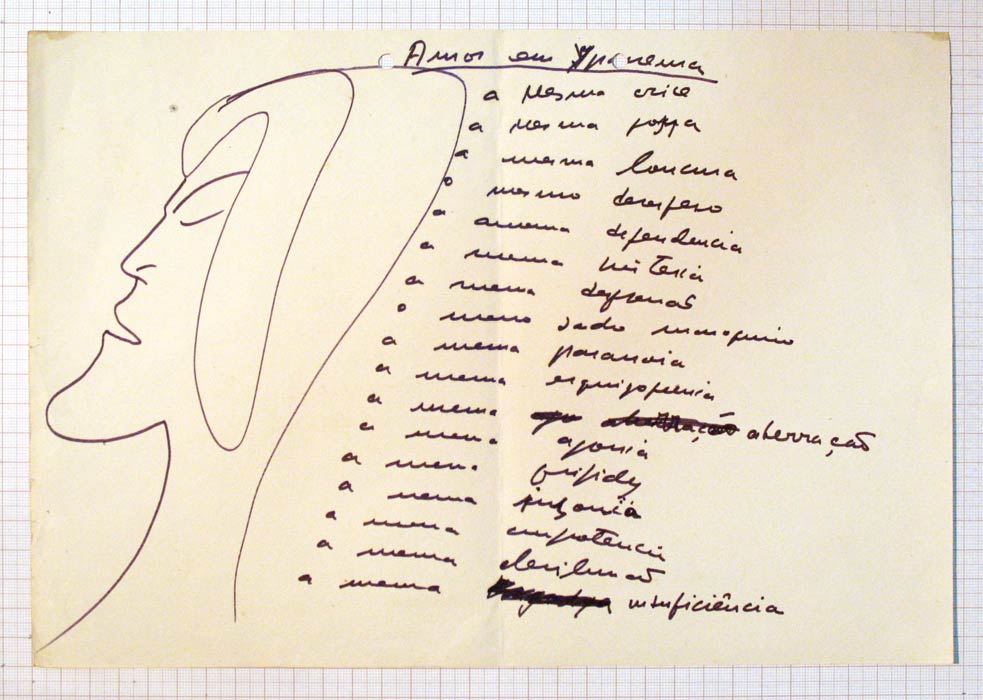 Amor em Ypanema
a mesma crise
a mesma fossa
a mesma loucura
o mesmo desespero
a mesma dependencia
a mesma histeria
a mesma depressão
o mesmo sado masoquismo
a mesma paranoia
a mesma esquizofrenia
a mesma aberração
a mesma agonia
a mesma frigidez
a mesma insonia
a mesma impotencia
a mesma desilusão
a mesma insuficiência